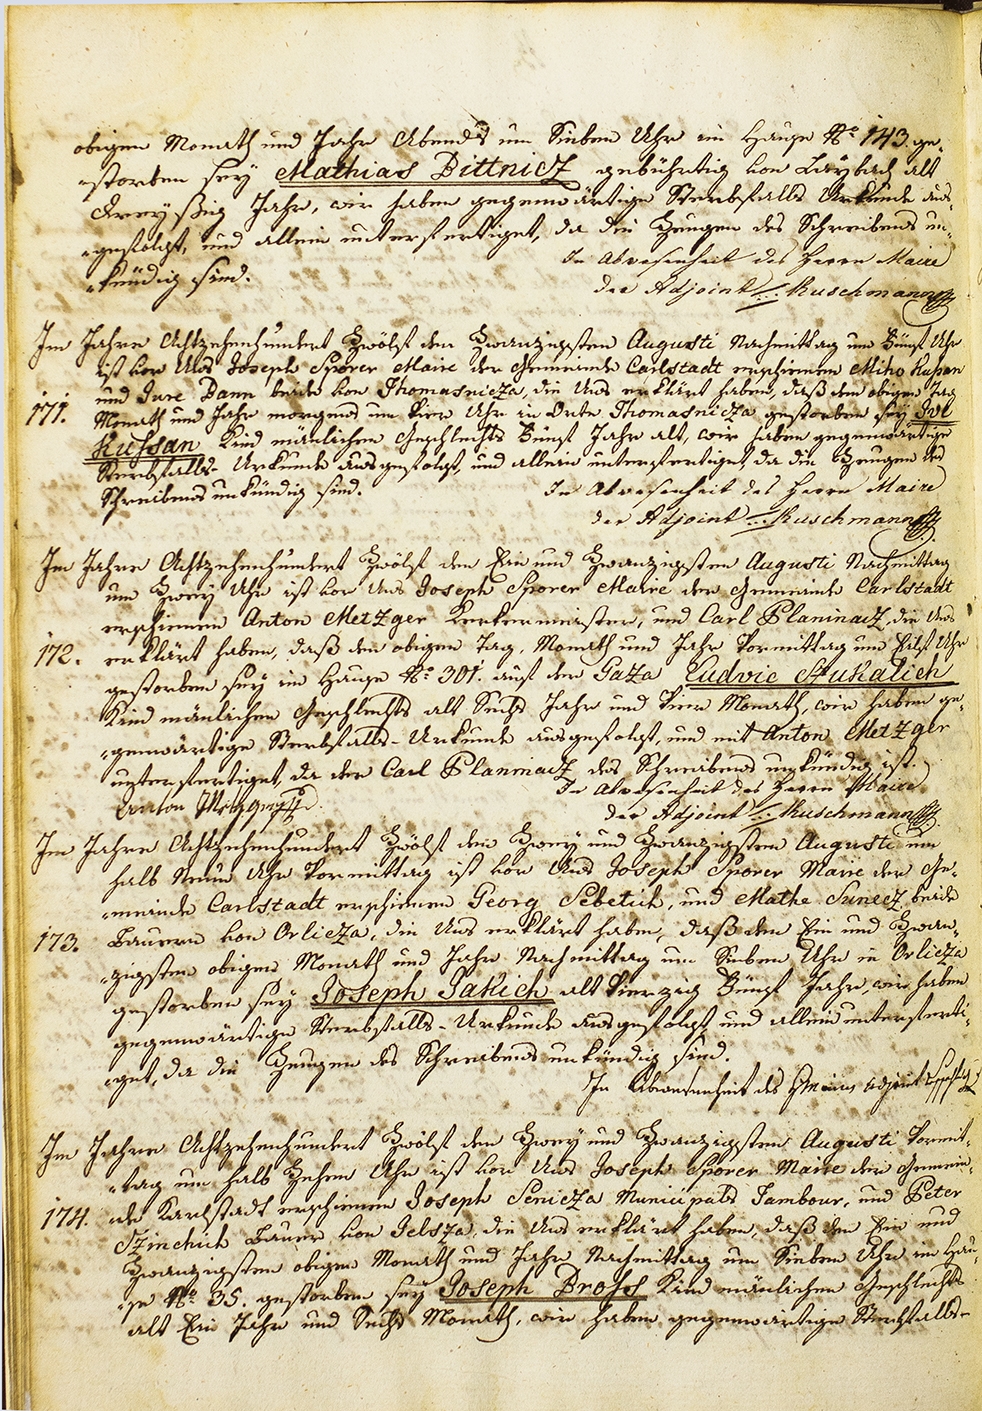 obigen Monath und Jahr Abends um Sieben Uhr im Hause No 143. ge-
-storben sey Mathias Dittnicz gebührtig von Laybach alt
dreyßig Jahr, wir haben gegenwärtige Sterbfalls Urkunde aus-
-gefolgt, und allein unterfertiget, da die Zeugen des Schreibens un-
-kündig sind. In Abwesenheit des Herrn Maire
der Adjoint Kuschmann
Im Jahre Achtzehenhundert Zwölf den Zwanzigsten Augusti Nachmittag um Fünf Uhr
ist vor Uns Joseph Sporer Maire der Gemeinde Carlstadt erschienen Miho Kussan
und Jure Bann beide von Thomasnicza, die Uns erklärt haben, daß den obigen Tag
171. Monath und Jahr morgens um vier Uhr in Orte Thomasnicza gestorben sey Ive
Kussan Kind mänlichen Geschlechts Fünf Jahr alt, wir haben gegenwärtige
Sterbfalls-Urkunde ausgefolgt, und allein unterfertiget, da die Zeugen des
Schreibens unkündig sind. In Abwesenheit des Herrn Maire
der Adjoint Kuschmann
Im Jahre Achtzehenhundert Zwölf den Ein und Zwanzigsten Augusti Nachmittag
um Zwey Uhr ist vor Uns Joseph Sporer Maire der Gemeinde Carlstadt
erschienen Anton Metzger Kerkermeister, und Carl Planinacz, die Uns
172. erklärt haben, daß den obigen Tag, Monath und Jahr Vormittag um Eilf Uhr
gestorben sey im Hause No 301. auf der Gaza Ludvic Stukalich
Kind mänlichen Geschlechts alt Sechs Jahr und Vier Monath, wir haben ge-
-genwärtige Sterbfalls-Urkunde ausgefolgt, und mit Anton Metzger
unterfertiget, da der Carl Planinacz des Schreibens unkündig ist.
In Abwesenheit des Herrn Maire
Anton Metzger
der Adjoint Kuschmann
Im Jahre Achtzehenhundert Zwölf den Zwey und Zwanzigsten Augusti um
halb Neun Uhr Vormittag ist vor Uns Joseph Sporer Maire der Ge-
-meinde Carlstadt erschienen Georg Sebetich, und Mathe Sunecz, beide
173. Bauern von Orlicza, die Uns erklärt haben, daß den Ein und Zwan-
-zigsten obigen Monath und Jahr Nachmittag um Sieben Uhr in Orlicza
gestorben sey Joseph Jakich alt Vierzig Fünf Jahr, wir haben
gegenwärtige Sterbfalls-Urkunde ausgefolgt, und allein unterferti-
-get, da die Zeugen des Schreibens unkündig sind.
In Abwesenheit des Maires Adjoint
Im Jahre Achtzehenhundert Zwölf den Zwey und Zwanzigsten Augusti Vormit-
-tag um halb Zehen Uhr ist vor Uns Joseph Sporer Maire der Gemein-
174. -de Karlstadt erschienen Joseph Senicza Municipals Tambour, und Peter
Szinchich Bauer von Jelsza, die Uns erklärt haben, daß den Ein und
Zwanzigsten obigen Monath und Jahr Nachmittag um Sieben Uhr im Hau-
-se No 35. gestorben sey Joseph Dross Kind mänlichen Geschlechts
alt Ein Jahr und Sechs Monath, wir haben gegenwärtige Sterbfalls-